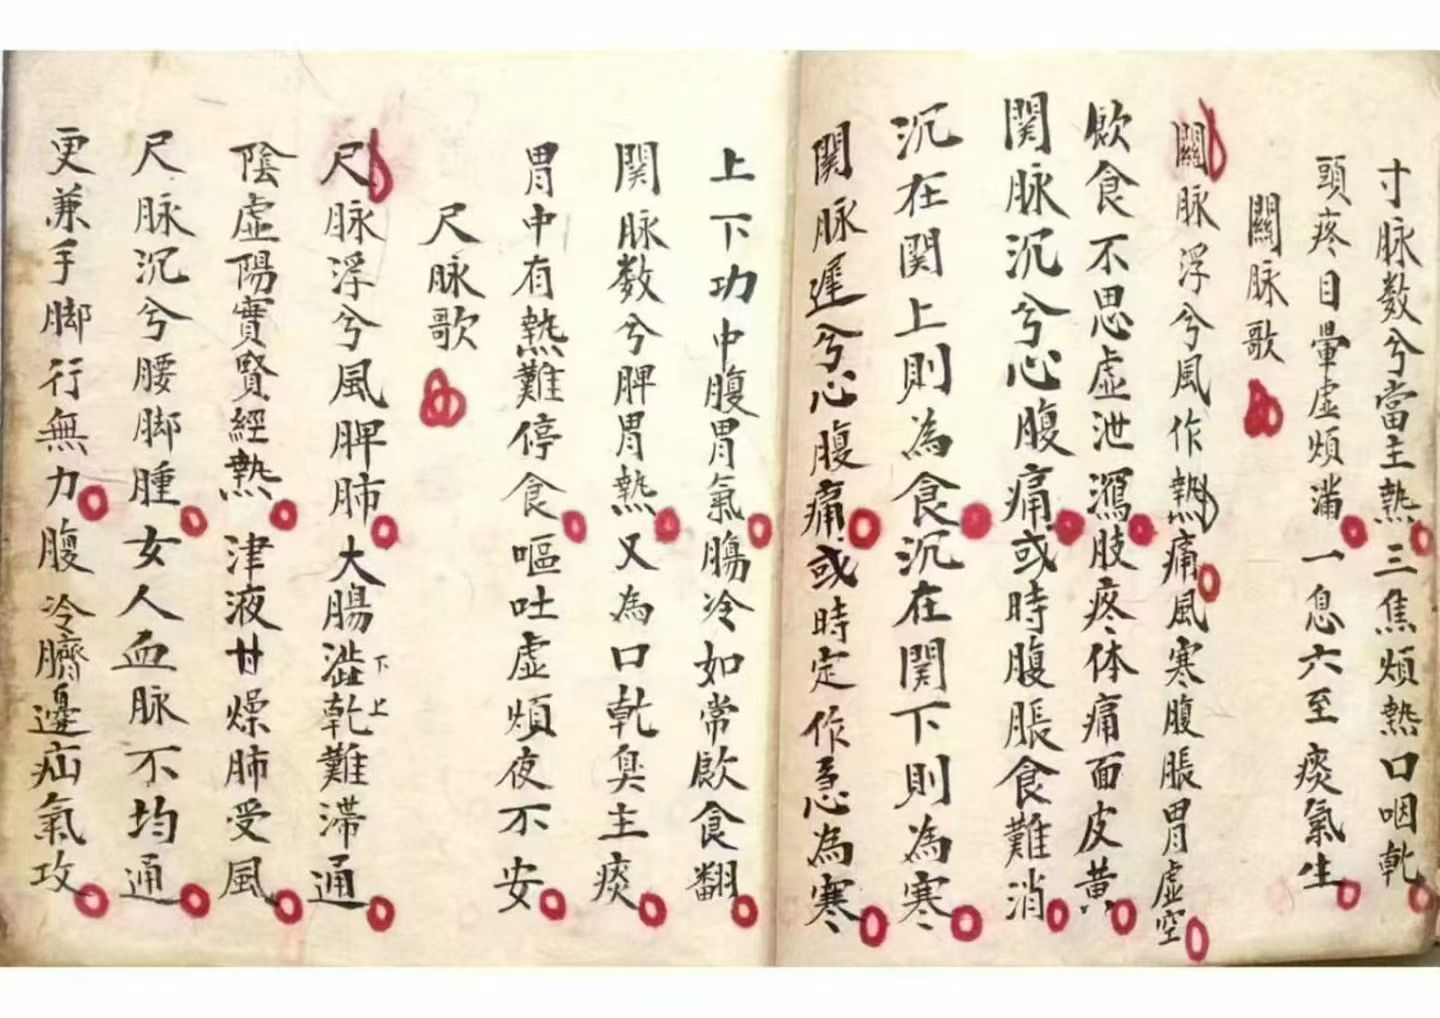 寸脉数兮當主熱三焦煩熱口咽乾
頭疼目暈虛煩滿一息六至痰氣生
關脉歌
關脉浮兮風作熱痛風寒腹脹胃虛空
飲食不思虛泄瀉肢疼体痛面皮黃
関脉沉兮心腹痛或時腹脹食難消
沉在関上則為食沉在関下則為寒
関脉遲兮心腹痛或時定作急為寒
上下功中腹胃氣腸冷如常飲食翻
関脉数兮脾胃熱又為口乾臭主痰
胃中有熱難停食嘔吐虛煩夜不安
尺脉歌
尺脉浮兮風脾肺大腸澁乾難滞通
下上
陰虛陽實賢經熱津液甘燥肺受風
尺脉沉兮腰脚腫女人血脉不均通
更兼手脚行無力腹冷臍邊疝氣攻